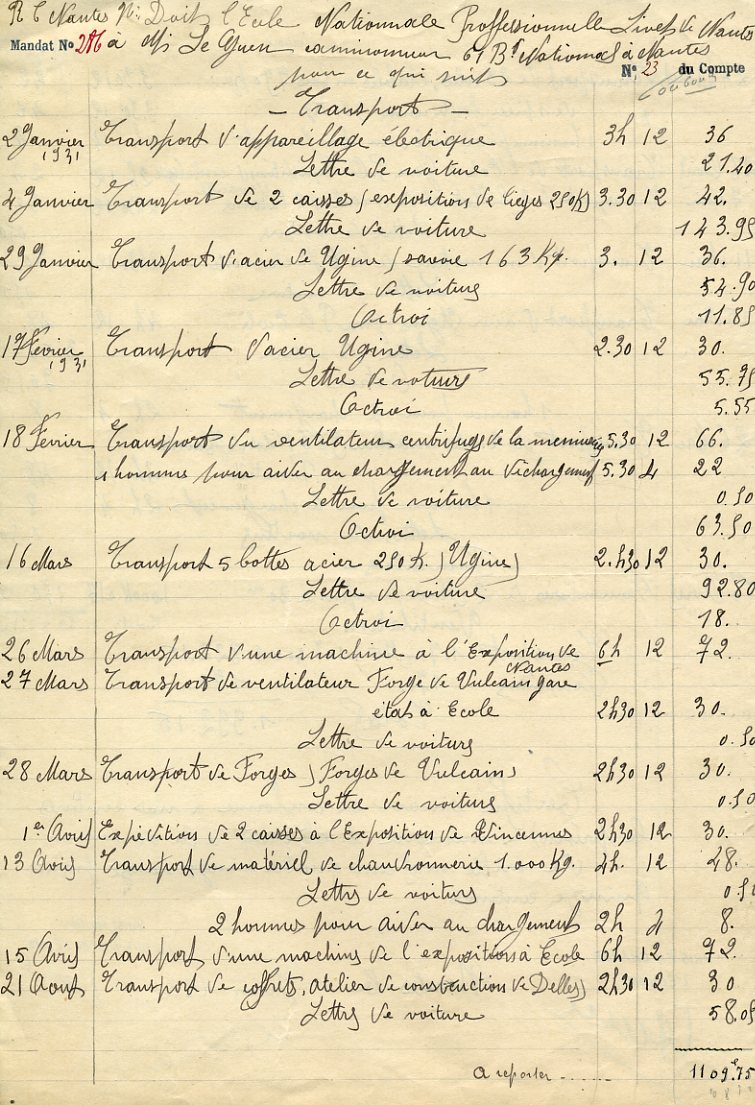 R C Nantes No Doit l'Ecole Nationale Proffessionnelle Livet de Nantes
Mandat No à Mr Le Guen camionneur 61 Bd National à Nantes
pour ce qui suit No 23 du Compte
- Transport -
2 Janvier 1931 Transport d'appareillage électrique 3h 12 36
Lettre de voiture 21.40
4 Janvier Transport de 2 caisses (exposition de Lieges 250K) 3.30 12 42.
Lettre de voiture 143.95
29 Janvier Transport d'acier de Ugine (savoie 163 Kg. 3. 12 36.
Lettre de voiture 54.90
Octroi 11.85
17 Février 1931 Transport d'acier Ugine 2.30 12 30.
Lettre de voiture 55.75
Octroi 5.55
18 Février Transport du ventilateur centrifuge de la 5.30 12 66.
1 homme pour aider au chargement au déchargement 5.30 4 22
Lettre de voiture 0.50
Octroi 63.50
16 Mars Transport 5 bottes acier 250 K. (Ugine) 2.h30 12 30.
Lettre de voiture 92.80
Octroi 18.
26 Mars Transport d'une machine à l'Exposition de Nantes 6h 12 72.
27 Mars Transport de ventilateur Forge de Vulcain gare
état à Ecole 2h30 12 30.
Lettre de voiture 0.50
28 Mars Transport de Forges (Forges de Vulcain) 2h30 12 30.
Lettre de voiture 0.50
1er Avril Expédition de 2 caisses à l'Exposition de Vincennes 2h30 12 30.
13 Avril Transport de matériel de chaudronnerie 1.000 Kg. 4h. 12 48.
Lettre de voiture 0.50
2 hommes pour aider au chargement 2h 4 8.
15 Avril Transport d'une machine de l'exposition à Ecole 6h 12 72.
21 Aout Transport de coffrets, atelier de construction de Delle) 2h30 12 30
Lettre de voiture 58.05
A reporter ...... 1109.75